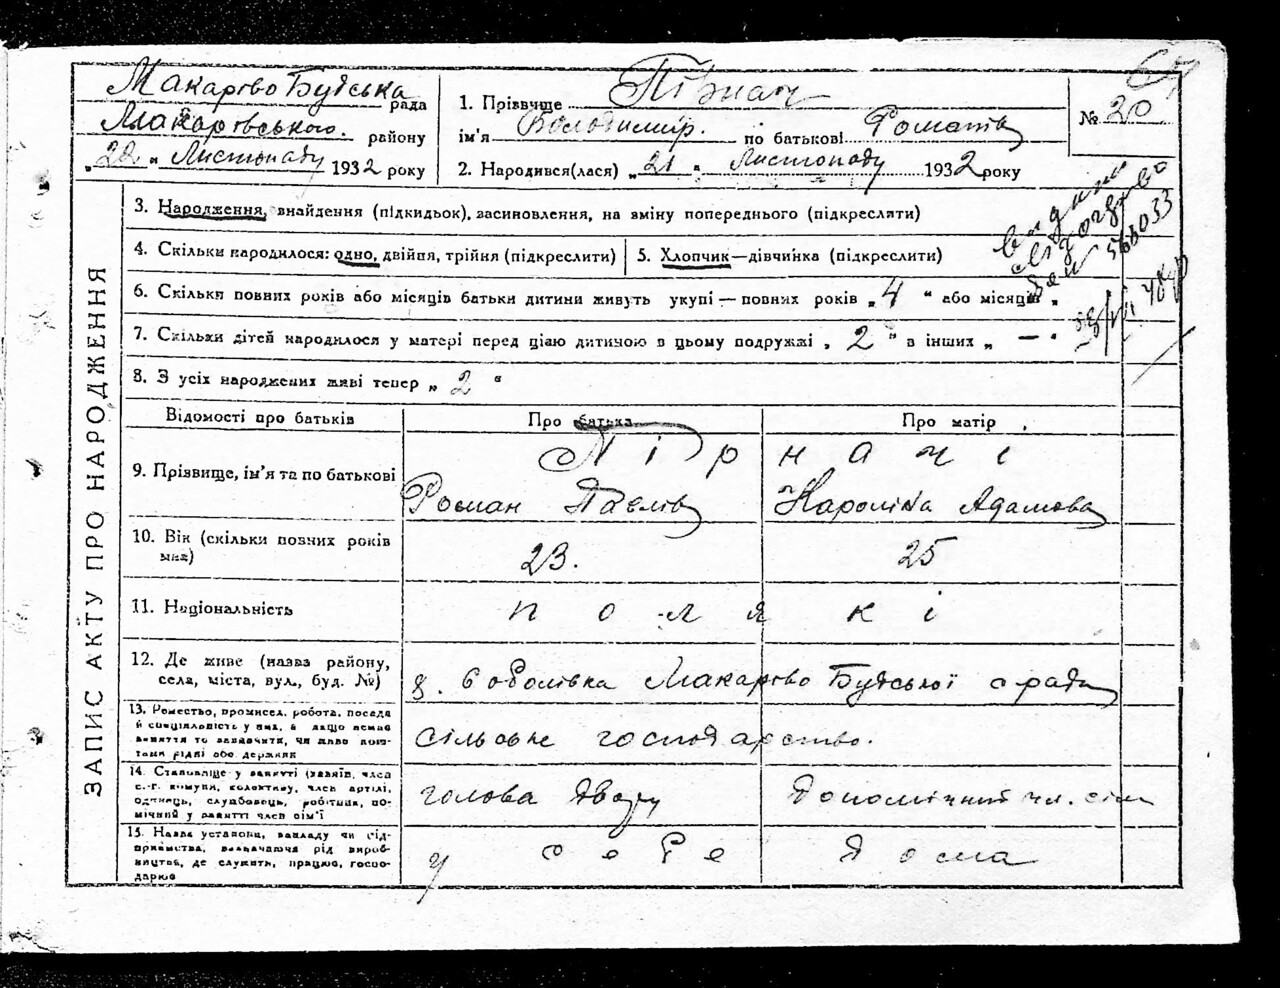 Макарово Будська рада
Макарівського району
"22" Листопаду 1932 року
1. Прізвище Пірнач
ім'я Володимир. по батькові Романів
2. Народився(лася) "21" Листопаду 1932 року
№ 20
ЗАПИС АКТУ ПРО НАРОДЖЕННЯ
3. Народження, знайдення (підкидьок), засиновлення, на зміну попереднього (підкреслити)
4. Скільки народилося: одно, двійня, трійня (підкреслити)
5. Хлопчик—дівчинка (підкреслити)
6. Скільки повних років або місяців батьки дитини живуть укупі — повних років "4" або місяців "
7. Скільки дітей народилося у матері перед цією дитиною в цьому подружжі "2" в інших "—"
8. З усіх народжених живі тепер "2"
Відомості про батьків
Про батька
Про матір
9. Прізвище, ім'я та по батькові
Пірначі
Роман Павлів
Кароліна Адамова
10. Вік (скільки повних років має)
23.
25
11. Національність
поляки
12. Де живе (назва району, села, міста, вул., буд. №)
Макарово Будської с ради
13. Ремество, промисел, робота, посада й спеціяльність у них, а якщо немає заняття то зазначити, чи живе коштами рідні або держави
сільське господарство.
14. Становище у занятті (хазяїн, член с.-г. комуни, колективу, член артілі, одинець, службовець, робітник, помічний у занятті член сім'ї
голова двору
допомічний чл. сім
15. Назва установи, закладу чи підприємства, визначаючи рід виробництва, де служить, працює, господарює
у себе дома
568033